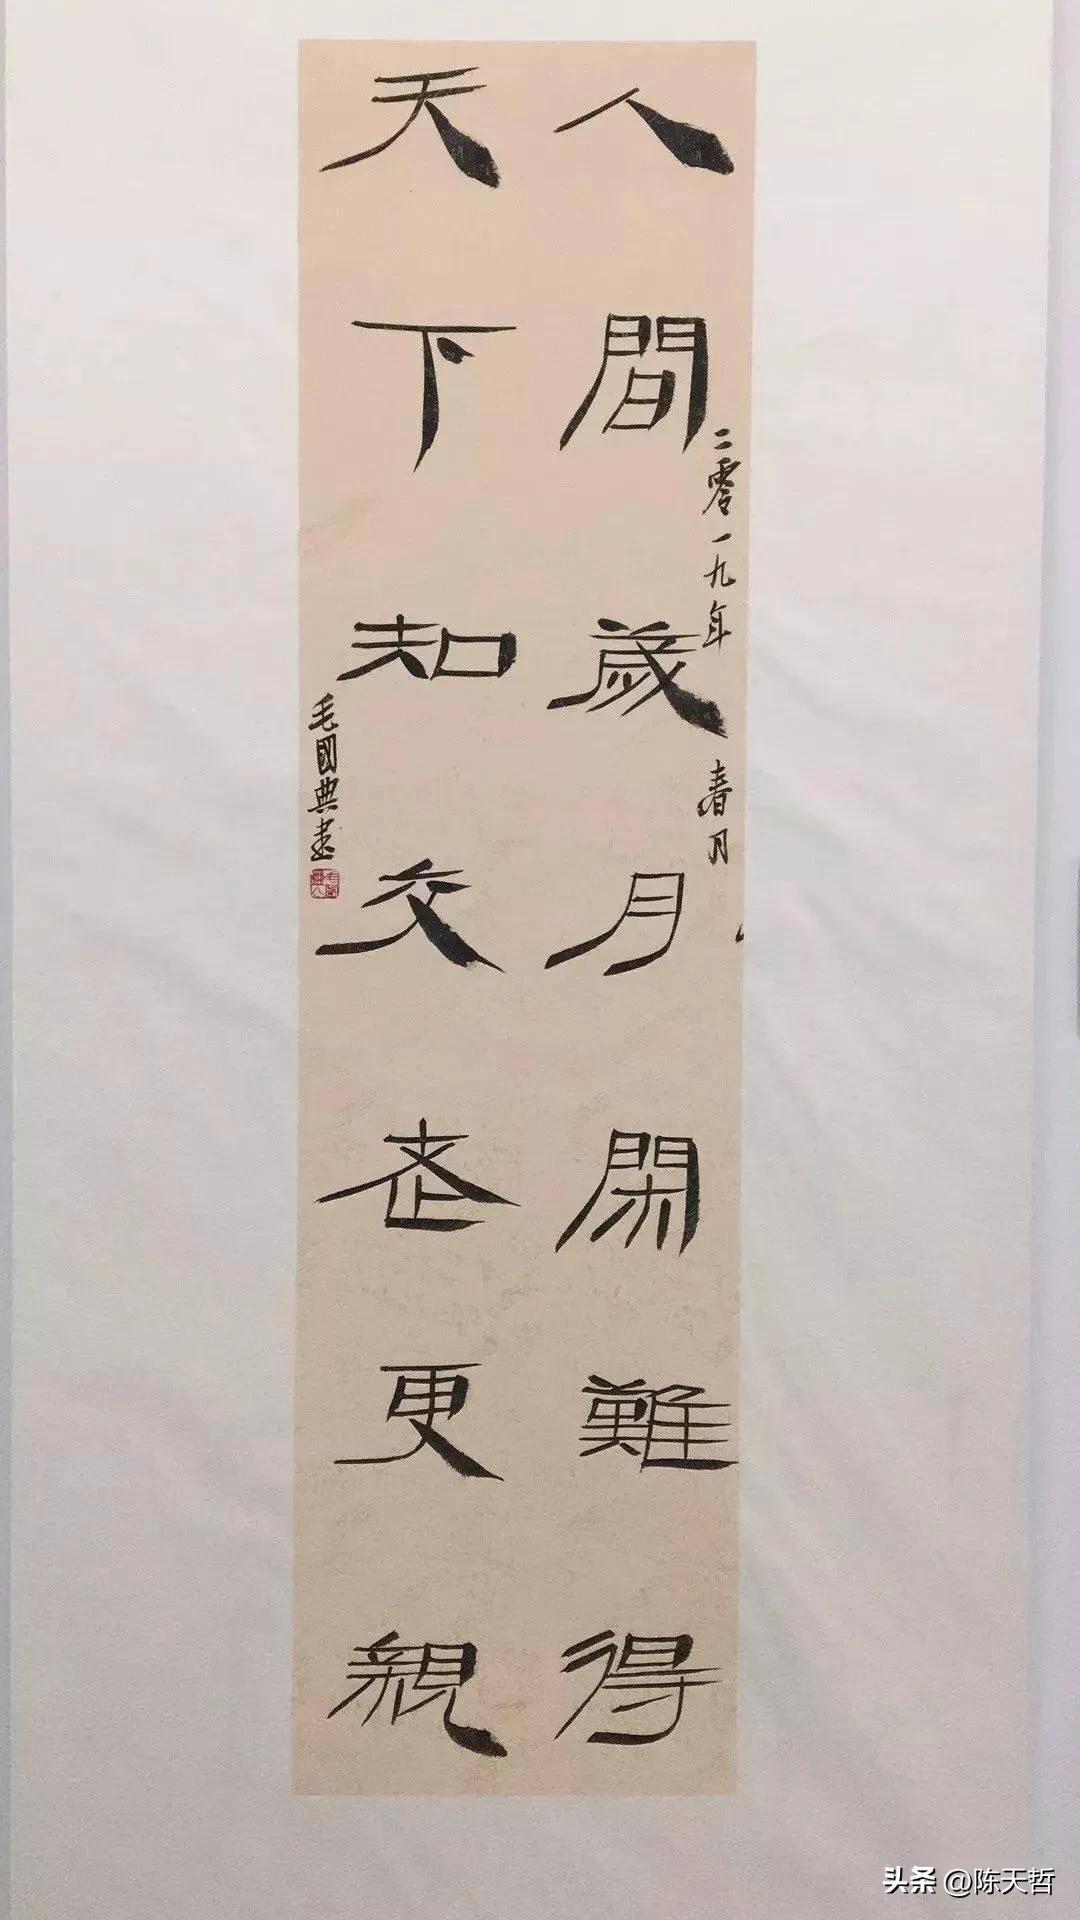 人間歲月閑難得
天下知交老更親
二零一九年
春月
毛國典書
头条 @陈天哲